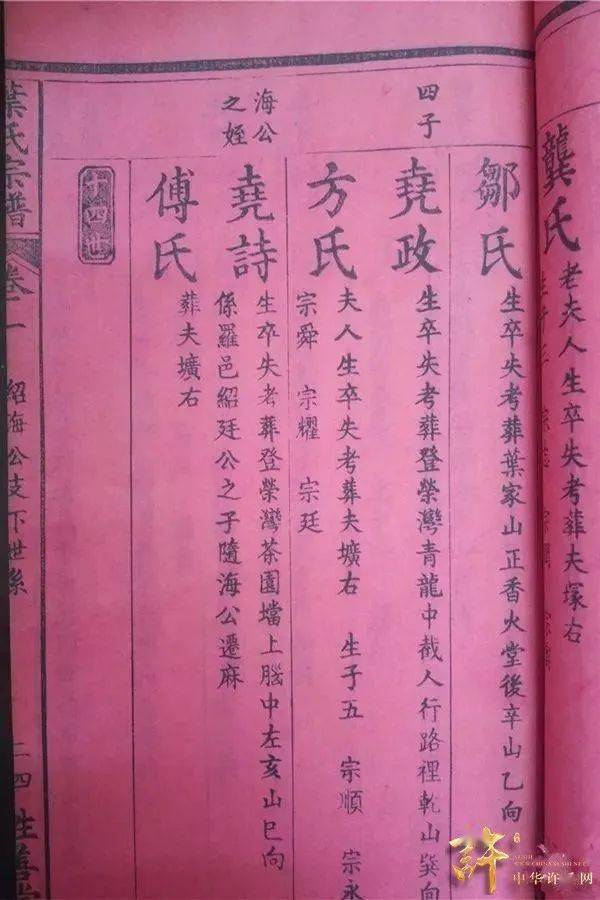 龔氏
老夫人生卒失考葬夫塚右
鄒氏
生卒失考葬葉家山正香火堂後辛山乙向
四子
堯政
生卒失考葬登榮灣青龍中截人行路裡乾山巽向
方氏
夫人生卒失考葬夫壙右 生子五 宗順 宗永
宗舜 宗耀 宗廷
海公
之姪
堯詩
生卒失考葬登榮灣茶園壋上腦中左亥山巳向
係羅邑紹廷公之子隨海公遷麻
傅氏
葬夫壙右
十四世
葉氏宗譜
卷二
紹海公支下世系
二四
中华许氏网